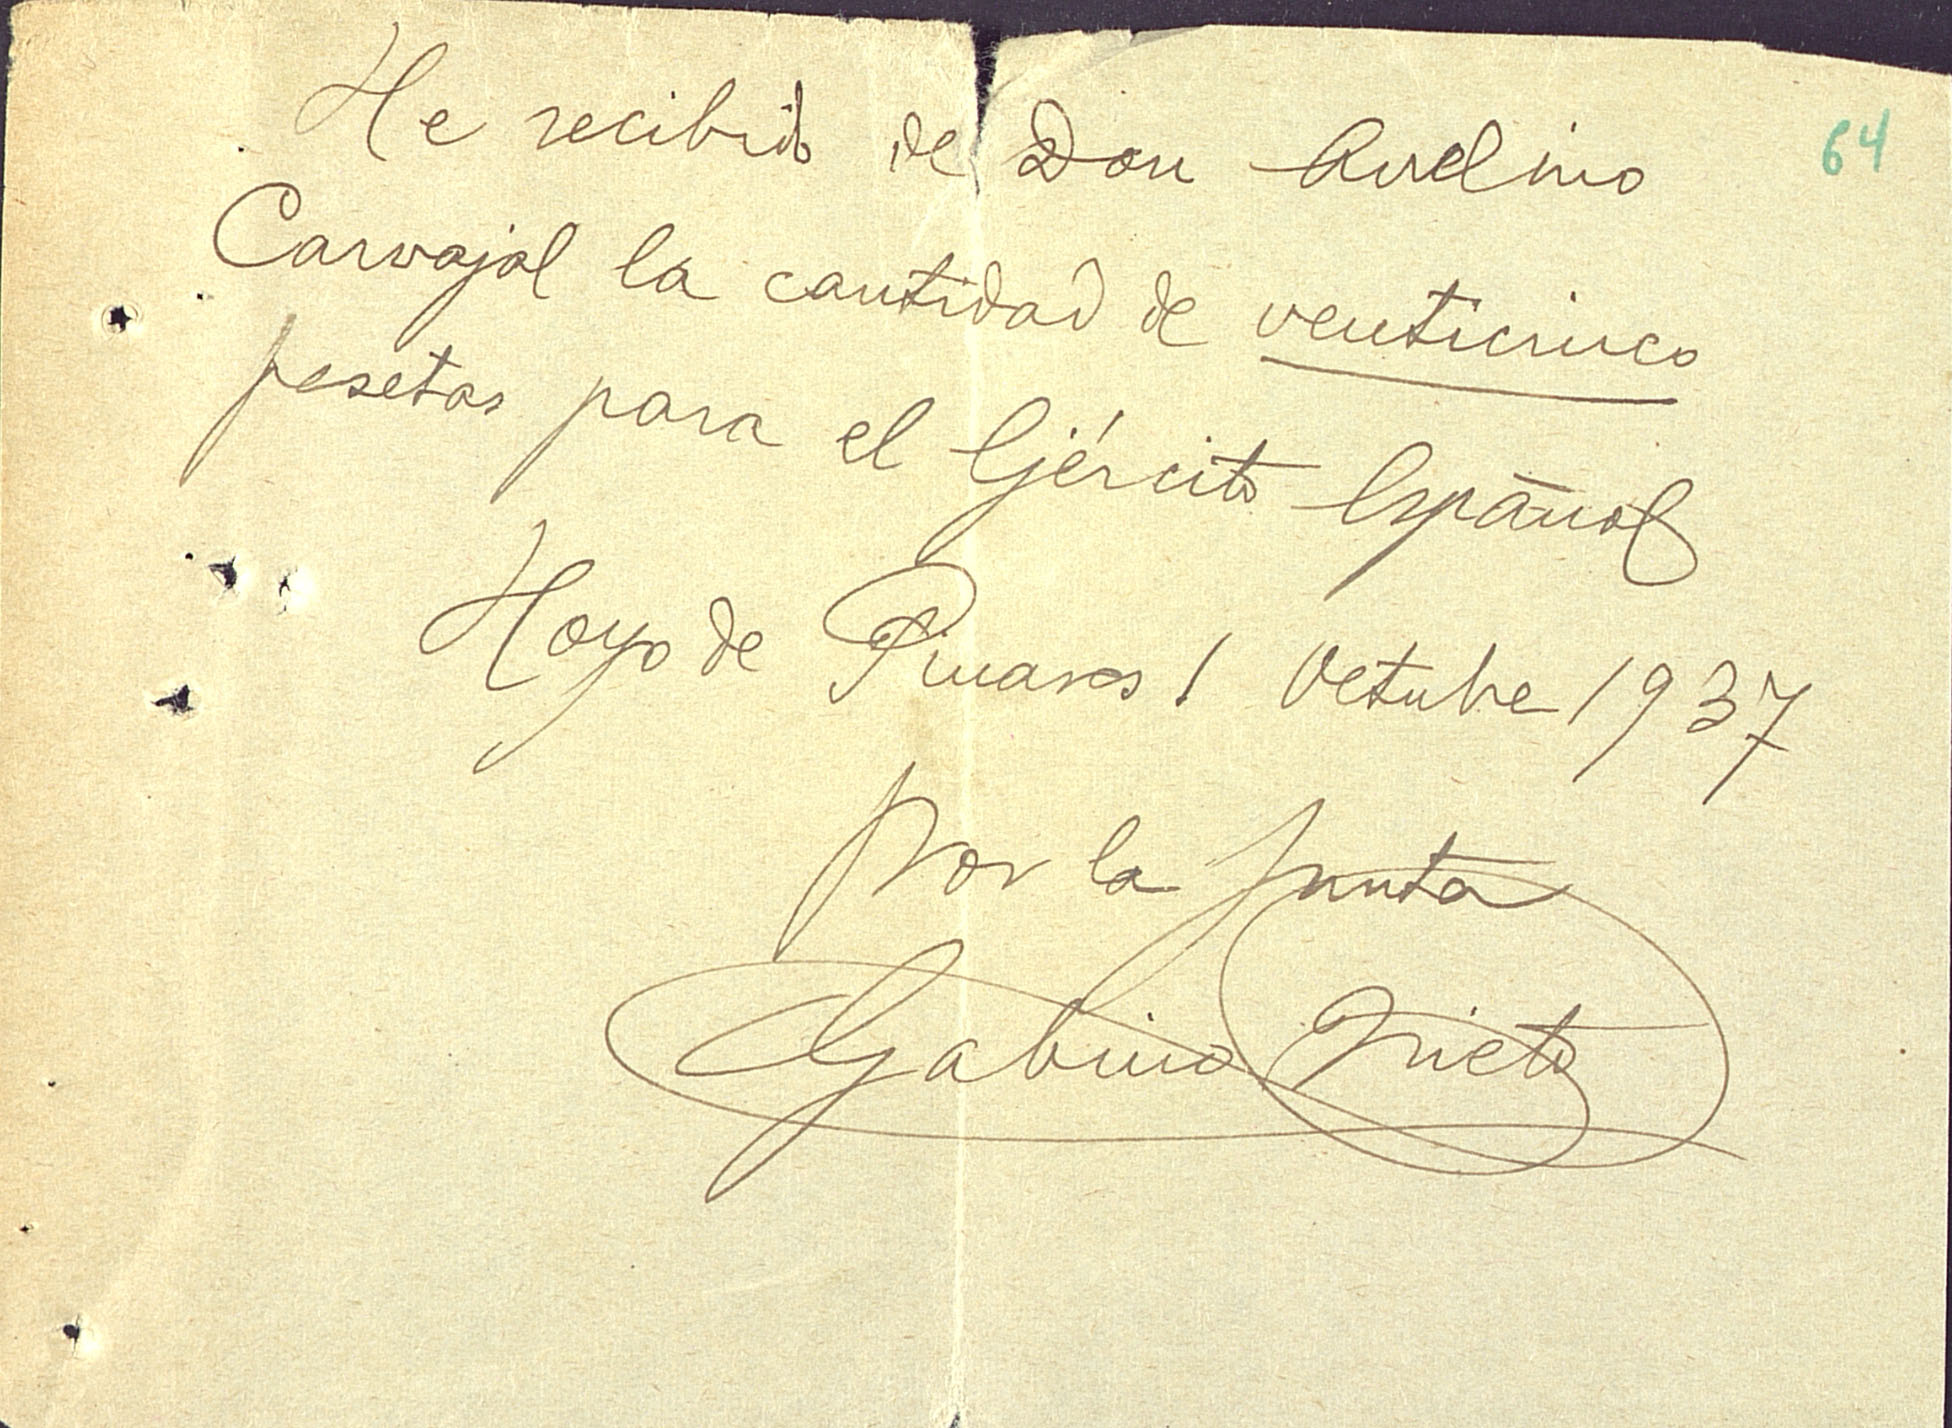 He recibido de Don Avelino
64
Carvajal la cantidad de venticinco
pesetas para el Ejército Español
Hoyo de Pinares 1 Octubre 1937
Por la Junta
Gabino Nieto